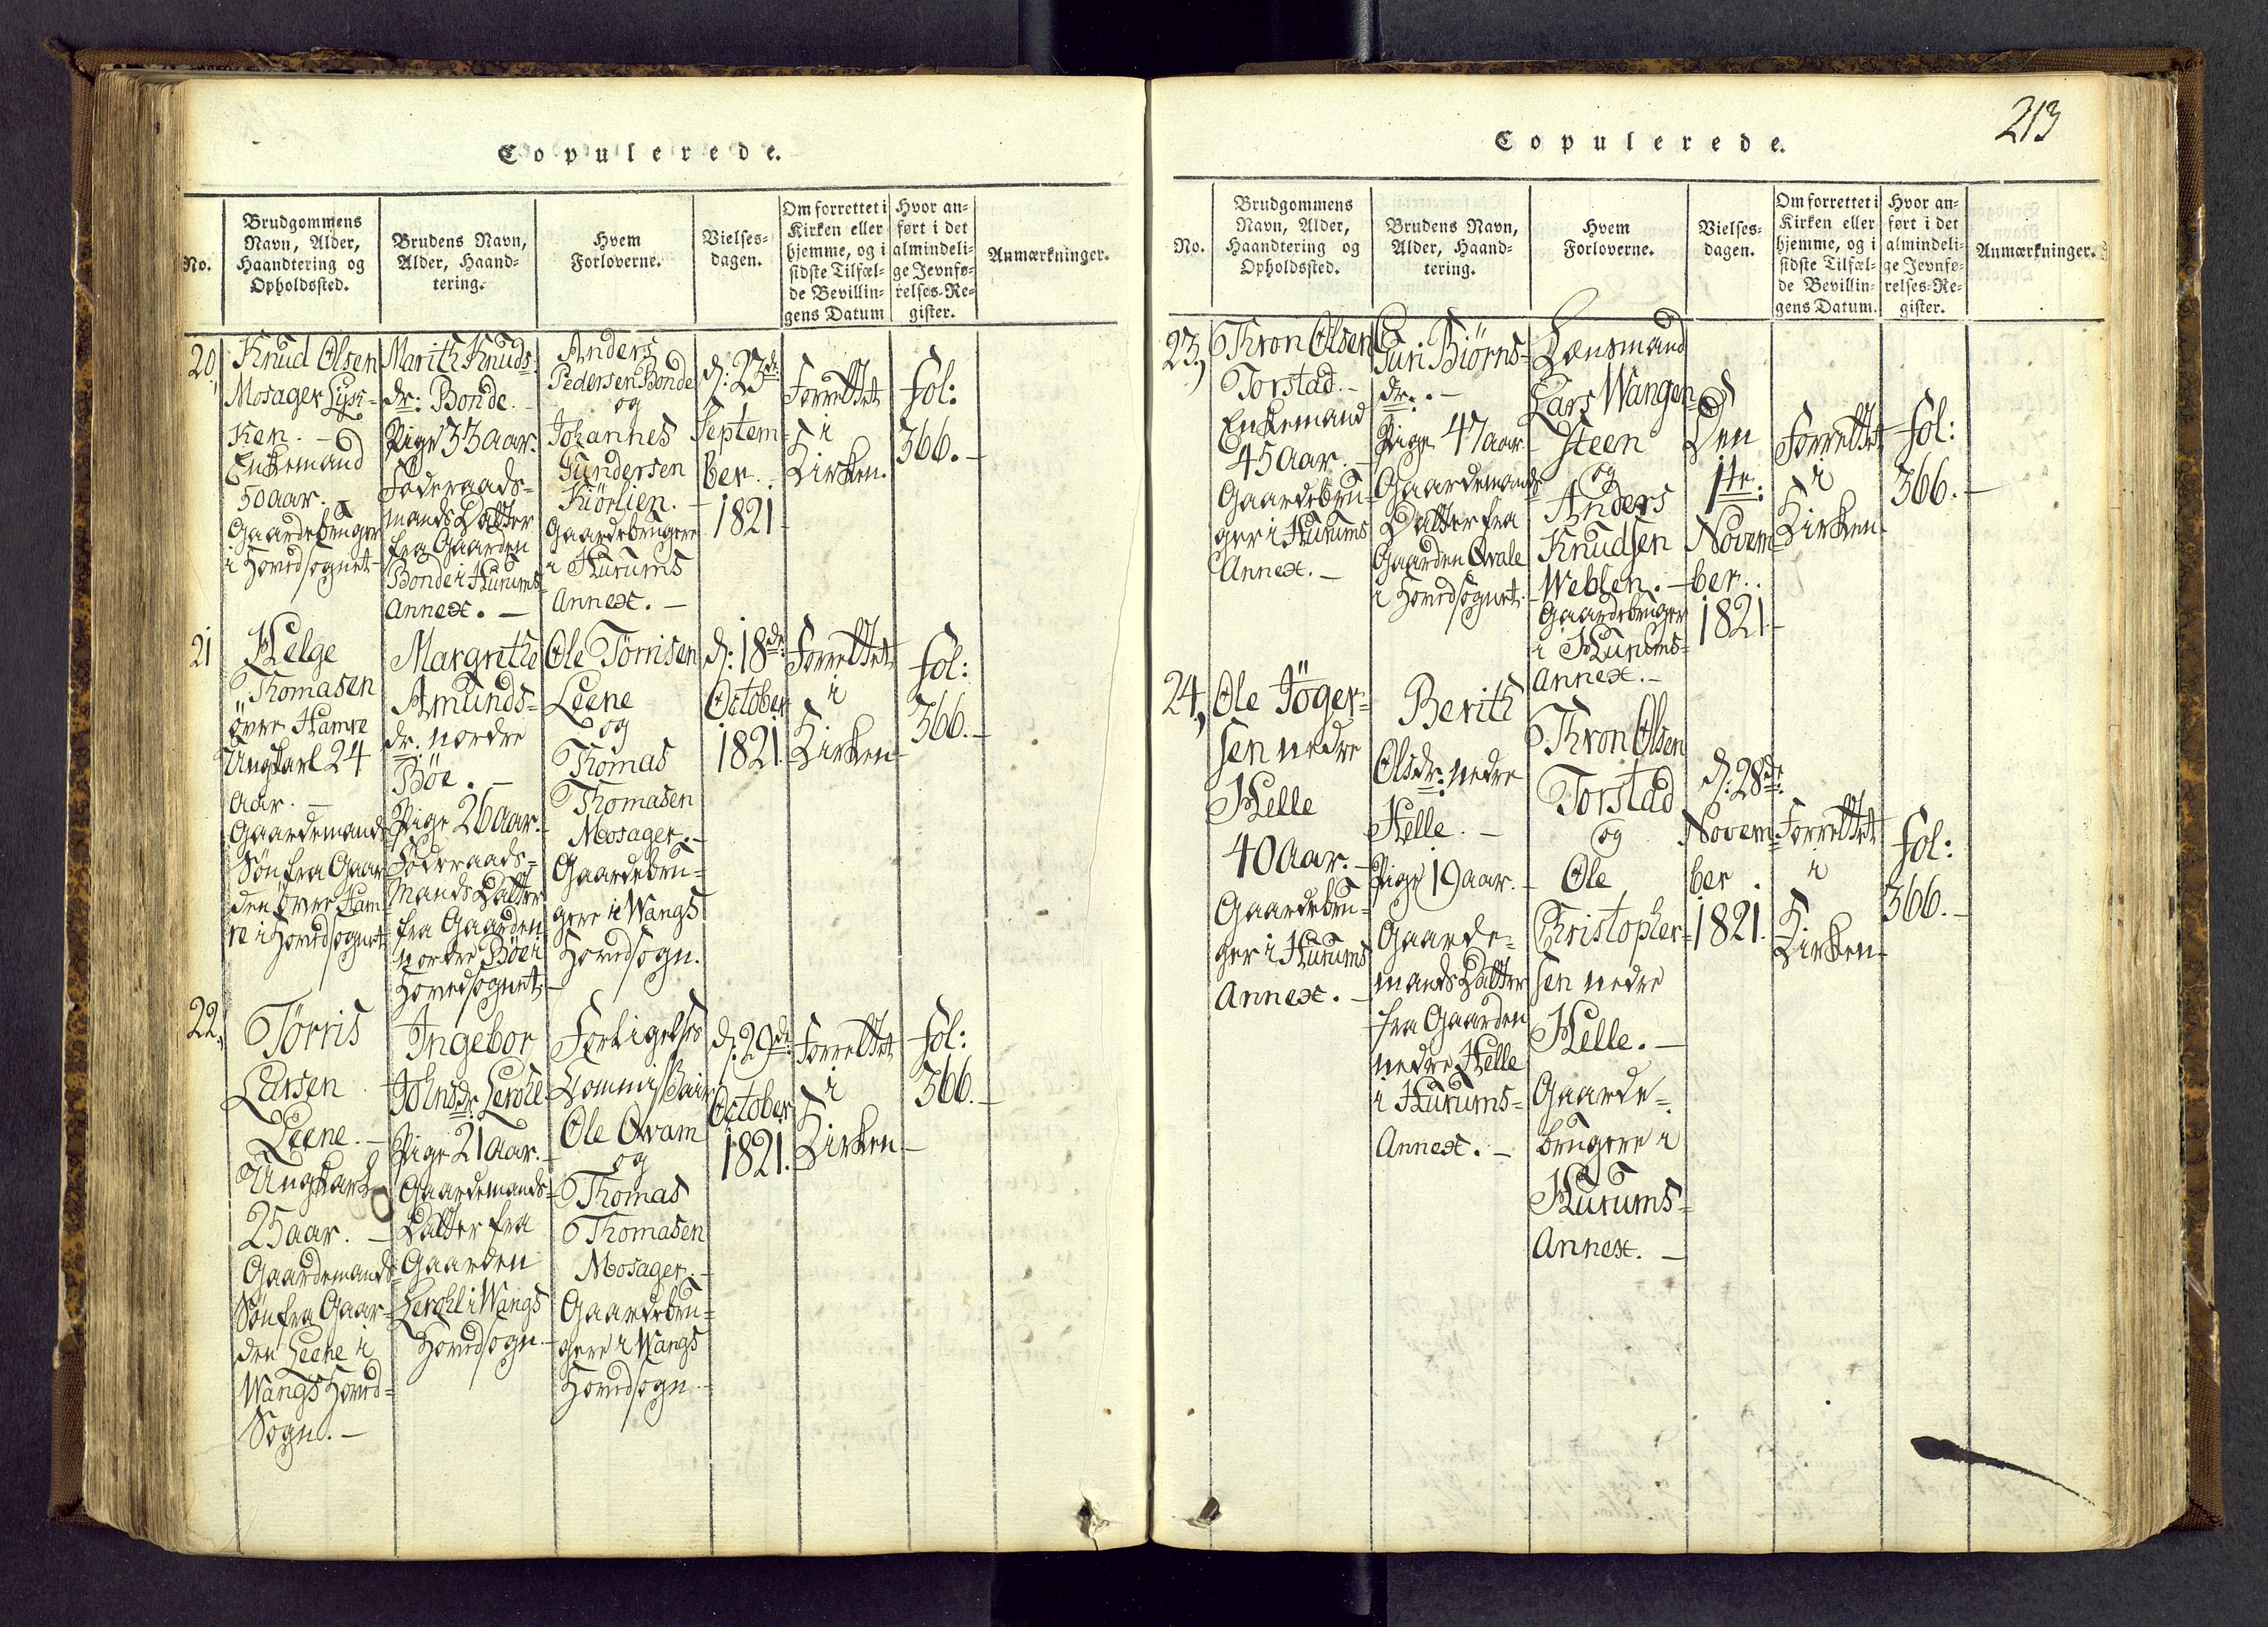 Copulerede.
No.
Brudgommens
Navn, Alder,
Haandtering og
Opholdssted.
Brudens Navn,
Alder, Haand-
tering.
Hvem
Forloverne.
Vielses-
dagen.
Om forrettet i
Kirken eller
hjemme, og i
sidste Tilfæl-
de Bevillin-
gens Datum
Hvor an-
ført i det
almindeli-
ge Jevnfø-
relses-Re-
gister.
Anmærkninger.
20,
Knud Olsen
Mosager Lyse-
Ken. -
Enkemand
50 aar. -
Gaardebruger
i Hovedsognet
Marith Knuds-
dr: Bonde. -
Pige 33 aar.
Føderaads-
mands Datter
fra Gaarden
Bonde i Hurums
Annex. -
Anders
Pedersen Bonde
og
Johannes
Gundersen
Kiörlien. -
Gaardebrugere
i Hurums
Annex. -
d: 23de
Septem-
ber.
1821
Forrettet
i
Kirken.
fol:
366. -
21
Helge
Thomasen
övre Hamre
Ungkarl 24
aar. -
Gaardemands
Søn fra Gaar
den övre Ham-
re i Hovedsognet
Margrethe
Amunds-
dr. nordre
Böe. -
Pige 26 aar.
Føderaads-
Mands Datter
fra Gaarden
nordre Böe i
Hovedsognet. -
Ole Törrisen
Leene
og
Thomas
Thomasen
Mosager. -
Gaardebru-
gere i Wangs
Hovedsogn.
d: 18de
October
1821.
Forrettet
i
Kirken
fol:
366. -
22,
Törris
Larsen
Leene. -
Ungkarl
25 aar. -
Gaardemands-
Søn fra Gaar-
den Leene i
Wangs Hoved-
Sogn. -
Ingebor
Johnsdr: Lerohl
Pige 21 aar. -
Gaardemands-
Datter fra
Gaarden
Lerohl i Wangs
Hovedsogn. -
Forligelses
Commissair
Ole Qvam
og
Thomas
Thomasen
Mosager. -
Gaardebru-
gere i Wangs
Hovedsogn. -
d: 29de
October
1821.
Forrettet
i
Kirken -
fol:
366. -
213
Copulerede.
No.
Brudgommens
Navn, Alder,
Haandtering og
Opholdssted.
Brudens Navn,
Alder, Haand-
tering.
Hvem
Forloverne.
Vielses-
dagen.
Om forrettet i
Kirken eller
hjemme, og i
sidste Tilfæl-
de Bevillin-
gens Datum.
Hvor an-
ført i det
almindeli-
ge Jevnfø-
relses-Re-
gister.
Anmærkninger.
23,
Thron Olsen
Torstad. -
Enkemand
45 aar. -
Gaardebru-
ger i Hurums
Annex. -
Guri Biörns-
dr: -
Pige 47 aar.
Gaardemands
Datter fra
Gaarden Qvale
i Hovedsognet.
Lensmand
Lars Wangen-
steen
og
Anders
Knudsen
Weblen. -
Gaardebruger
i Hurums-
Annex. -
Den
1te:
Novem
ber.
1821
Forrettet
i
Kirken
fol:
366. -
24,
Ole Jöger-
sen nedre
Helle
40 aar. -
Gaardebru-
ger i Hurums
Annex. -
Berith
Olsdr: nedre
Helle. -
Pige 19 aar. -
Gaarde-
mands Datter
fra Gaarden
nedre Helle
i Hurums-
Annex. -
Thron Olsen
Torstad
og
Ole
Christopher-
sen nedre
Helle. -
Gaarde-
brugere i
Hurums-
Annex. -
d: 28de
Novem-
ber.
1821.
Forrettet
i
Kirken
fol:
366. -